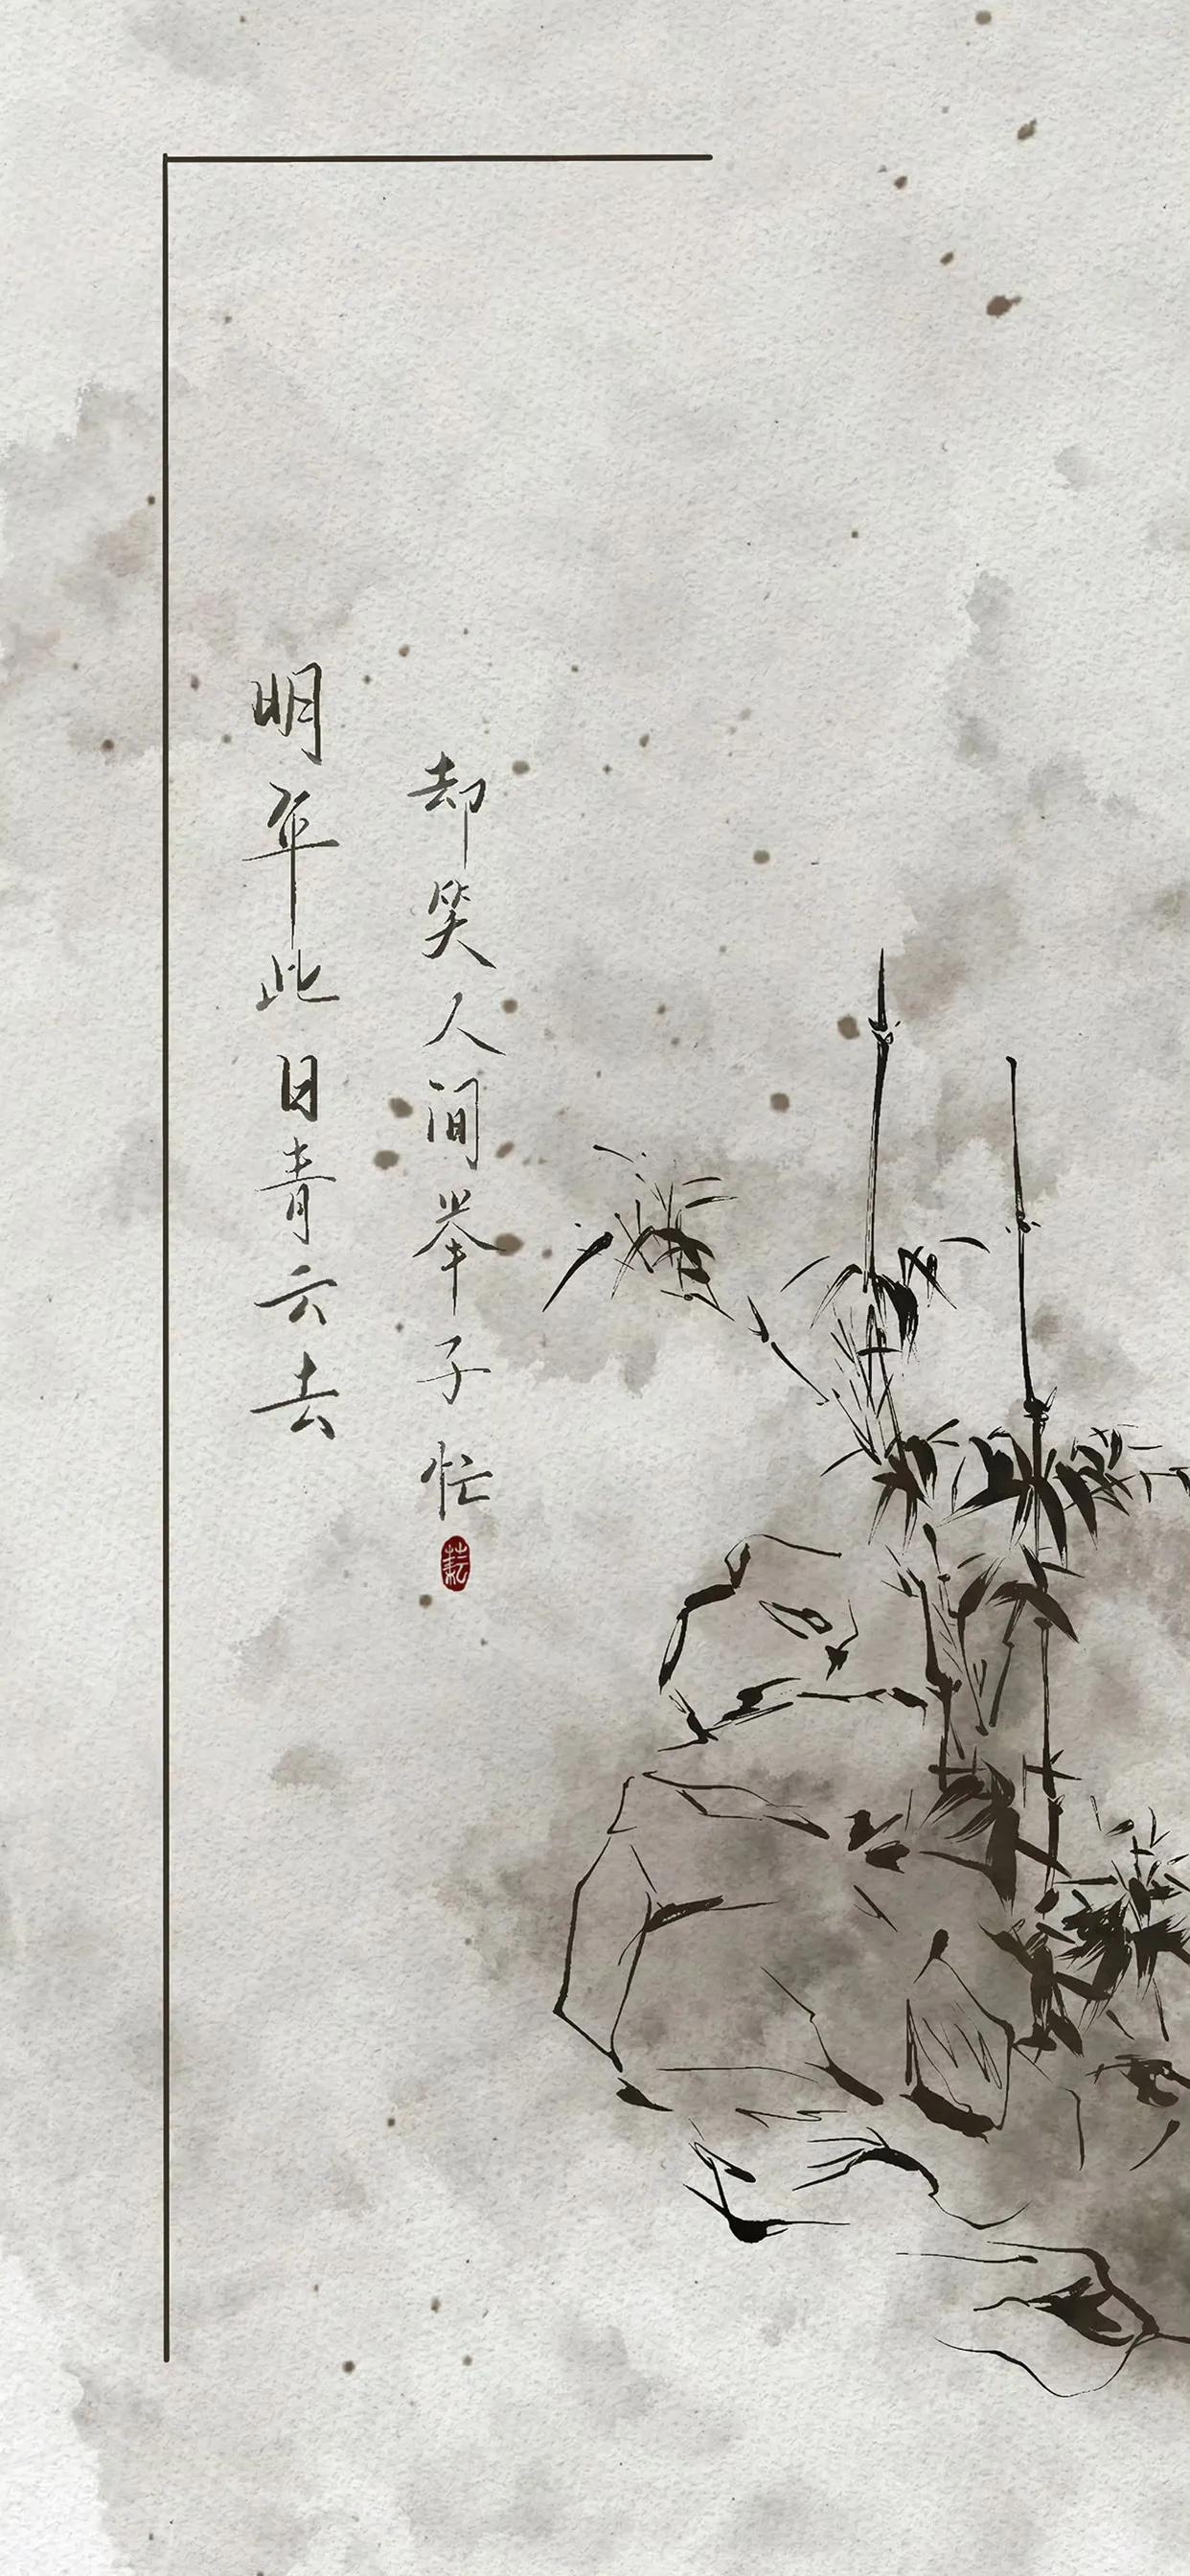 明年此日青云去
却笑人间举子忙
耘